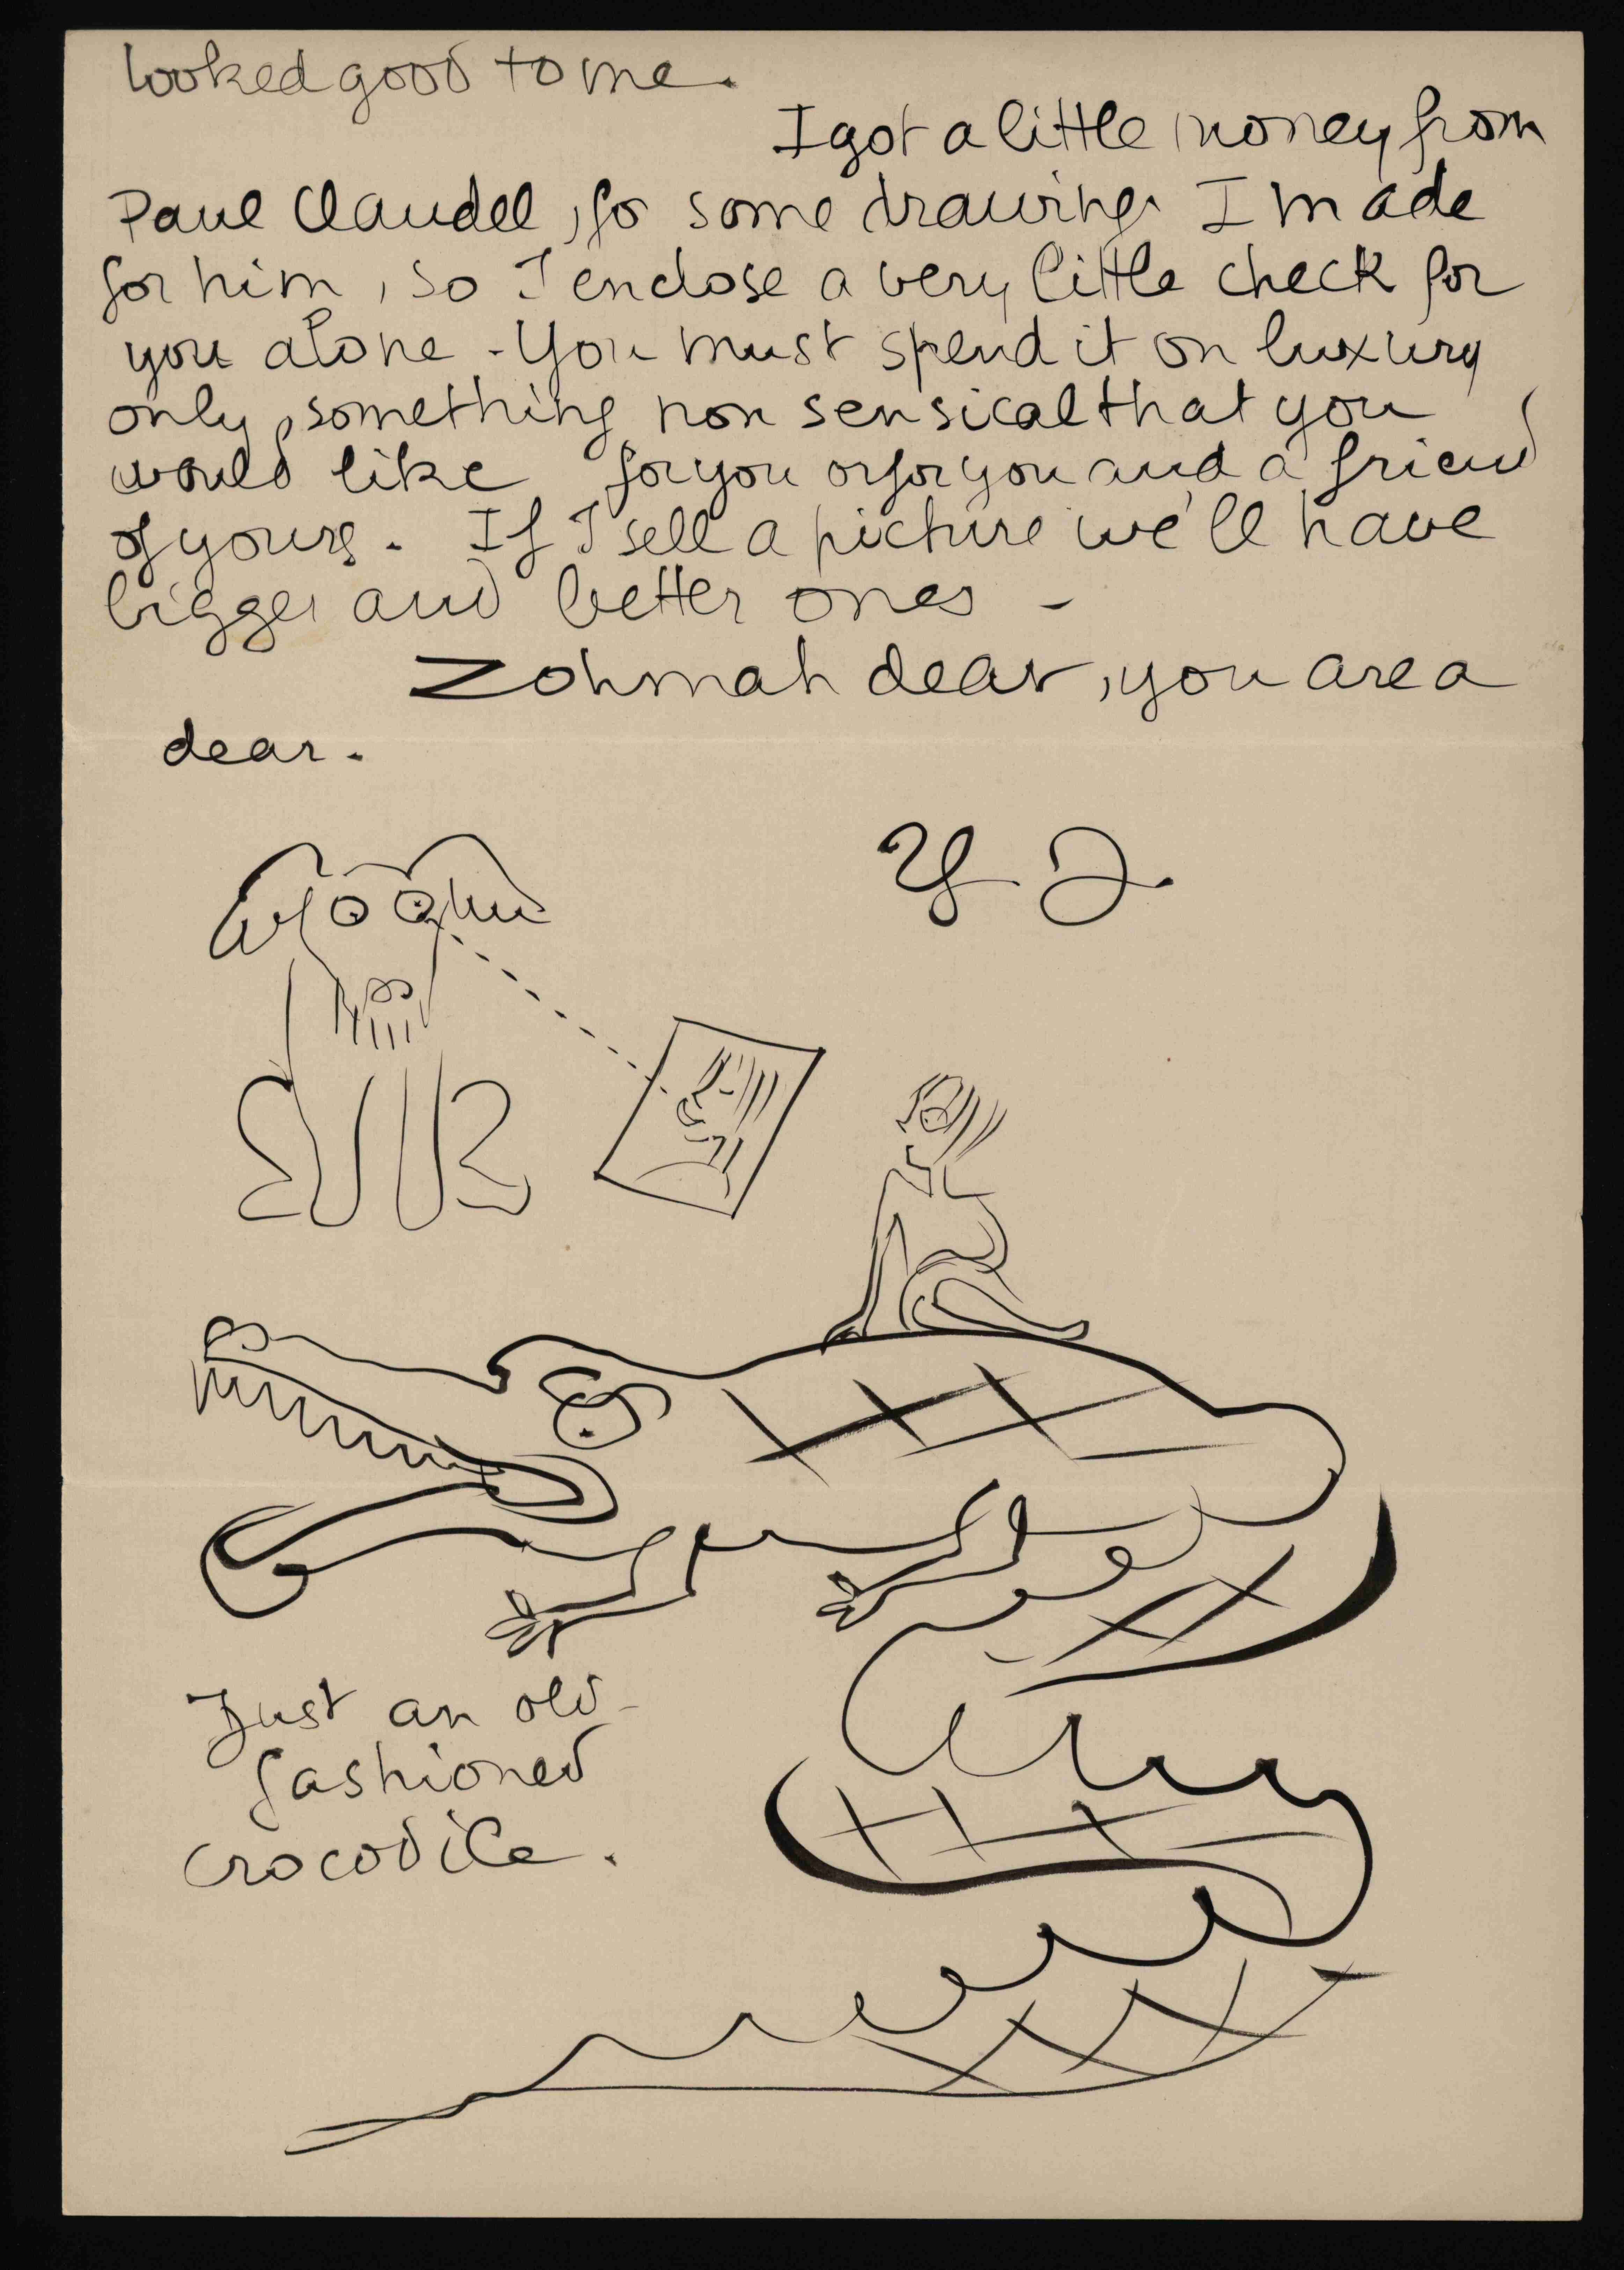 looked good to me.
I got a little money from
Paul Claudel, fo some drawings I made
for him, so I enclose a very little check for
you alone - You must spend it on luxury
only, something non sensical that you
would like for you or for you and a friend
of yours. If I sell a picture we'll have
bigger and better ones -
Zohmah dear, you are a
dear.
Just an old-
fashioned
crocodile.